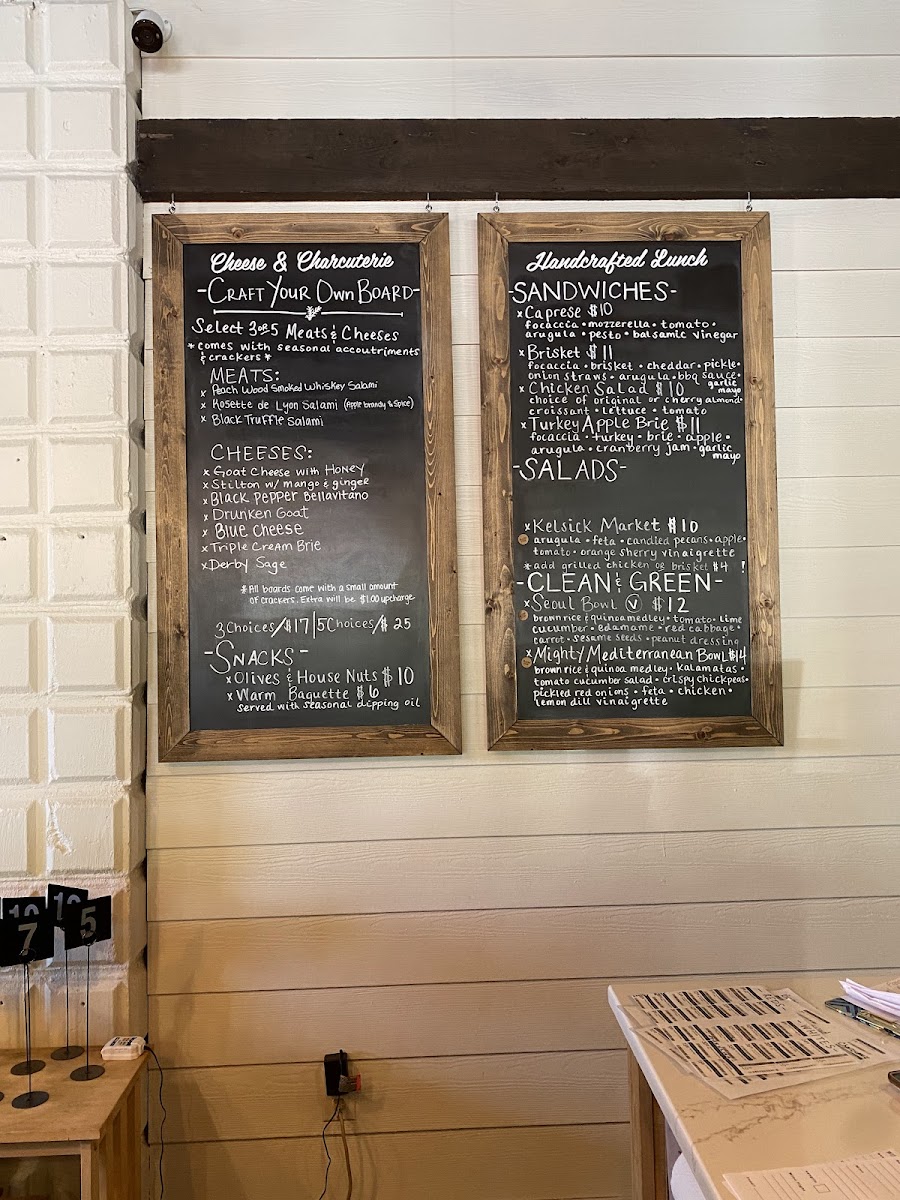 Cheese & Charcuterie
-CRAFT YOUR OWN BOARD-
Select 3 or 5 Meats & Cheeses
*comes with seasonal accoutriments
& crackers *
MEATS:
x Peach Wood Smoked Whiskey Salami
x Rosette de Lyon Salami (Apple brandy & Spice)
x Black Truffle Salami
CHEESES:
x Goat Cheese with Honey
x Stilton w/ mango & ginger
x Black Pepper Bellavitano
x Drunken Goat
x Blue Cheese
x Triple Cream Brie
x Derby Sage
* All boards come with a small amount
of crackers. Extra will be $1.00 upcharge
3 Choices/$17|5 Choices/$ 25
-SNACKS-
x Olives & House Nuts $10
x Warm Baguette $6
served with seasonal dipping oil
Handcrafted Lunch
-SANDWICHES-
x Caprese $10
focaccia • mozzerella • tomato •
arugula • pesto • balsamic vinegar
x Brisket $11
focaccia • brisket • cheddar • pickle •
onion straws • arugula • bbq sauce •
garlic
mayo
x Chicken Salad $10
choice of original or cherry almond •
croissant • lettuce • tomato
x Turkey Apple Brie $11
focaccia • turkey • brie • apple •
arugula • cranberry jam • garlic
mayo
-SALADS-
x Kelsick Market $10
arugula • feta • candied pecans • apple •
tomato • orange sherry vinaigrette
* add grilled chicken or brisket $4 !
-CLEAN & GREEN-
x Seoul Bowl V $12
brown rice & quinoa medley • tomato • lime
cucumber • edamame • red cabbage •
carrot • sesame seeds • peanut dressing
x Mighty Mediterranean Bowl $14
brown rice & quinoa medley • kalamatas •
tomato cucumber salad • crispy chickpeas •
pickled red onions • feta • chicken •
lemon dill vinaigrette
7
5